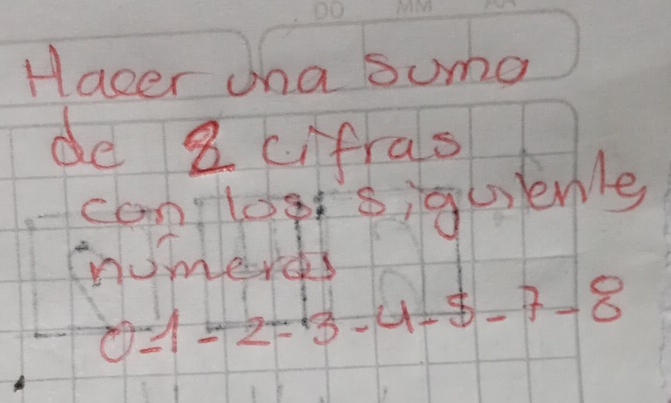 DD MM AA
Hacer una suma
de 2 cifras
con los siguiente
números
0-1-2-3-4-5-7-8